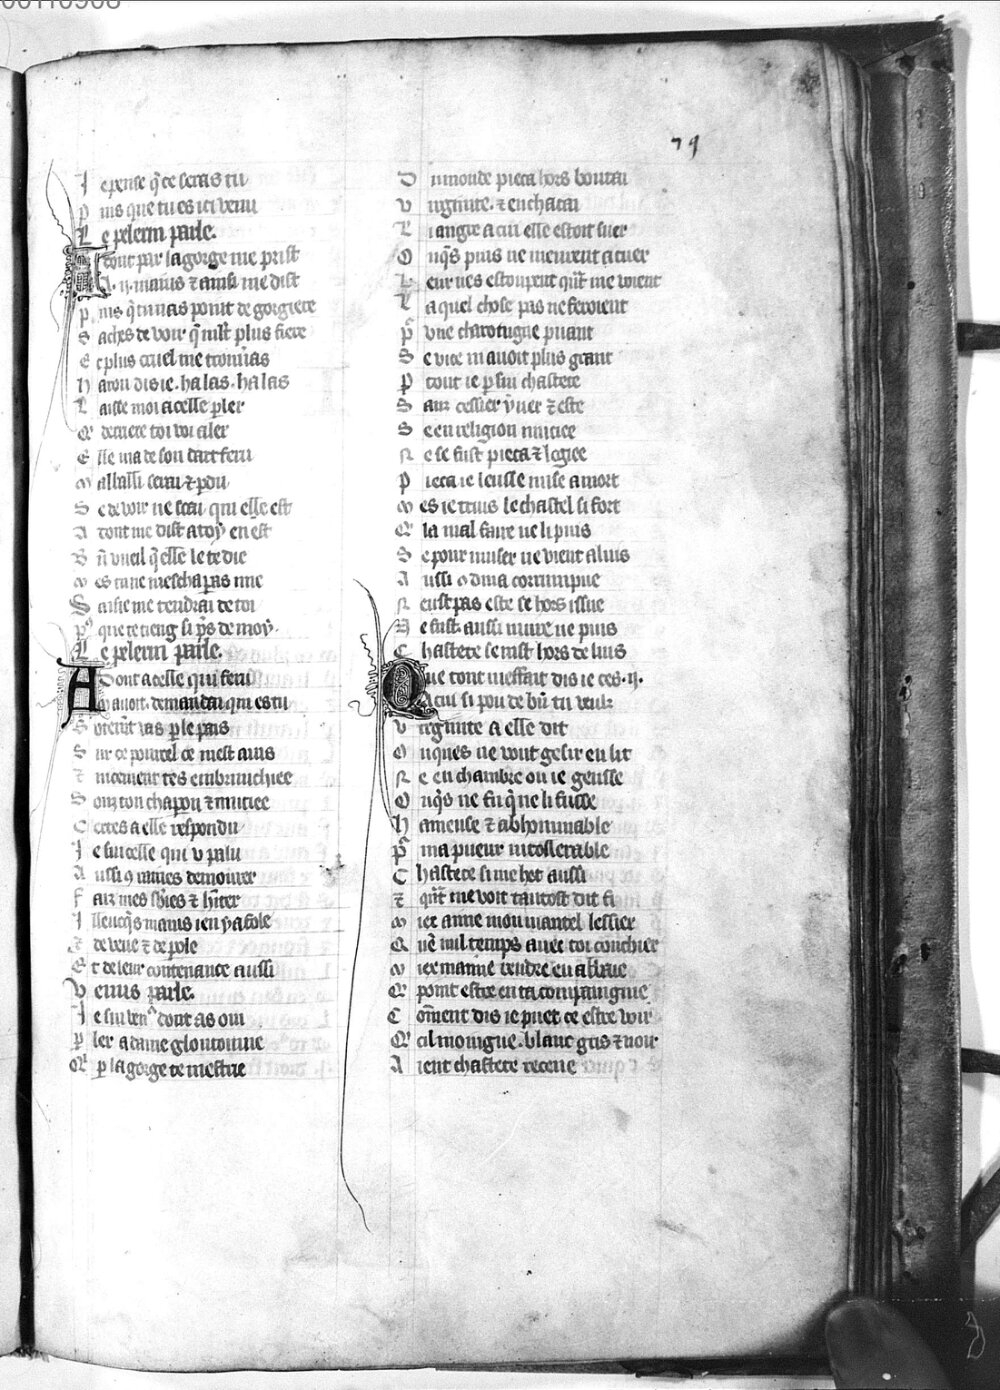 79
J e pense q̃ ce seras tu
P uis que tu es ici venu
L e pelerin parle.
T tout par la gorge me prist
A .ij. mains ⁊ ainsi me dist
P uis q̃ tu nas point de gorgiere
S aches de voir q̃ mlt plus fiere
E t plus cruel me trouuas
H arou dis ie. ha las. ha las
L aisse moi a celle ꝑler
Q̃ derriere toi voi aler
E lle ma de son dart feru
M al lassi serai ⁊ ꝑdu
S e de voir ne scai qui elle est
A dont me dist a toy en est
B ñ vueil q̃ elle le te die
M es tu ne meschaꝑas mie
S aisie me tendrai de toi
P⁹ que te tieng si pͥs de moy.
L e pelerin parle.
A Dont a celle qui feru
M auoit. demandai qui es tu
S ꝑ le pais
S ur ce pourcel ce mest auis
⁊ embrunchiee
S ouz ton chapon ⁊ muciee
C ertes a elle respondu
J e sui celle qui
A ussi ꝯ mues demourer
F air mes
J llencq̃s mains ien y afole
⁊ de veue ⁊ de ꝑole
E t de leur contenance aussi
V enus parle.
J e sui ven⁹ dont as oui
P ler a dame gloutonnie
Q̃ ꝑ la gorge te mestrie
D u monde pieca hors boutai
V irginite. ⁊ enchacai
L i angre a cui elle estoit suer
O nq̃s puis ne meurent a cuer
L eur nes estoupent qñt me voient
L a quel chose pas ne feroient
P̃ vne charongne puant
S e vice ni auoit plus grant
P tout ie ꝑsui chastete
S anz cessier yuer ⁊ este
S e en religion mucie
N e se fust pieca ⁊ logiee
P ieca ie leusse mise a mort
M es ie truis le chastel si fort
Q̃ la mal faire ne li puis
S e pour muser ne vient a luis
A ussi ꝯ dina corrumpue
N eust pas este se hors issue
N e fust. aussi nuire ne puis
C hastete se nist hors de luis
Q ue tont meffait dis ie ces .ij.
A cui si pou de bñ tu veulz
V irginite a elle dit
O nques ne vout gesir en lit
N e en chambre ou ie geusse
O nq̃s ne fu q̃ ne li fusse
H aineuse ⁊ abhominable
P̃ ma pueur intollerable
C hastete si me het aussi
⁊ qñt me voit tantost dit fi
M iex aime mon mantel lessier
Q̃ nẽ mil temps auec toi couchier
M iex maime rendre en abbaie
Q̃ point estre en ta compaingnie
C oment dis ie puet ce estre voir
Q̃ cil moingne. blanc gris ⁊ noir
A ient chastete receue